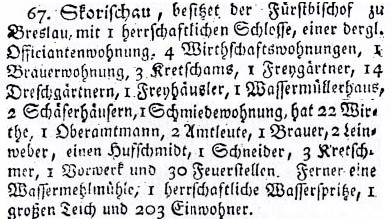 67. Skorischau, besitzet der Fürstbischof zu
Breslau, mit 1 herrschaftlichen Schlosse, einer dergl.
Officiantenwohnung, 4 Wirthschaftswohnungen, 1
Brauerwohnung, 3 Kretschams, 1 Freygärtner, 14
Dreschgärtnern, 1 Freyhäusler, 1 Wassermüllerhaus,
2 Schäferhäusern, 1 Schmiedewohnung, hat 22 Wir-
the, 1 Oberamtmann, 2 Amtleute, 1 Brauer, 2 Lein-
weber, einen Hufschmidt, 1 Schneider, 3 Kretsch-
mer, 1 Vorwerk und 30 Feuerstellen. Ferner eine
Wassermehlmühle, 1 herrschaftliche Wasserspritze, 1
großen Teich und 203 Einwohner.